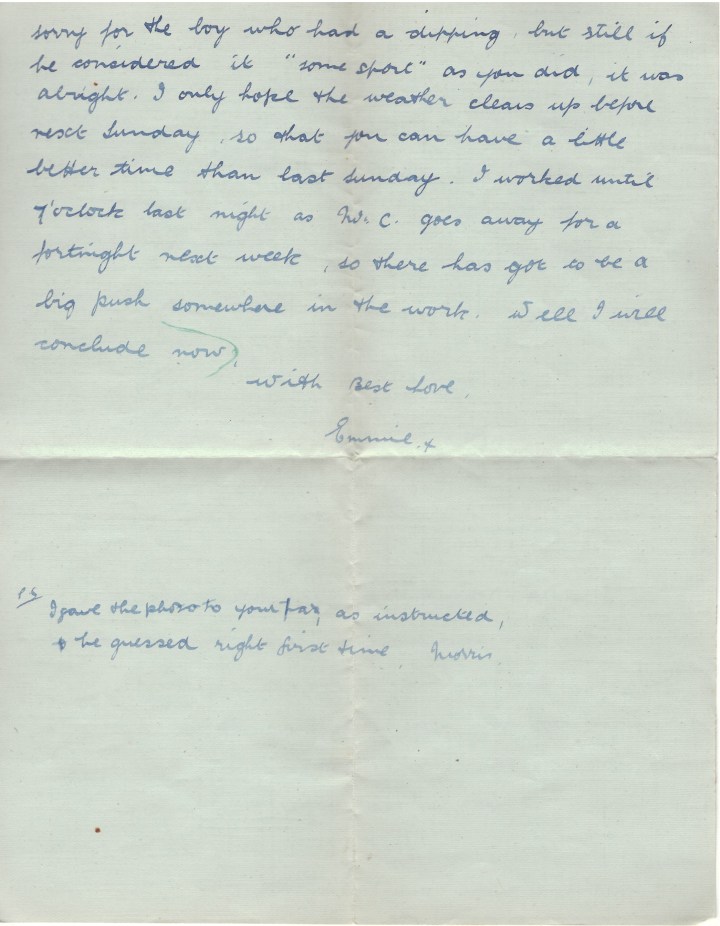 sorry for the boy who had a dipping, but still if
he considered it "some sport" as you did, it was
alright. I only hope the weather clears up before
next Sunday, so that you can have a little
better time than last Sunday. I worked until
7 o'clock last night as Mr. C. goes away for a
fortnight next week, so there has got to be a
big push somewhere in the work. Well I will
conclude now,
With Best Love,
Emmie. x
PS
I gave the photo to your Pa, as instructed,
& he guessed right first time. Morris.